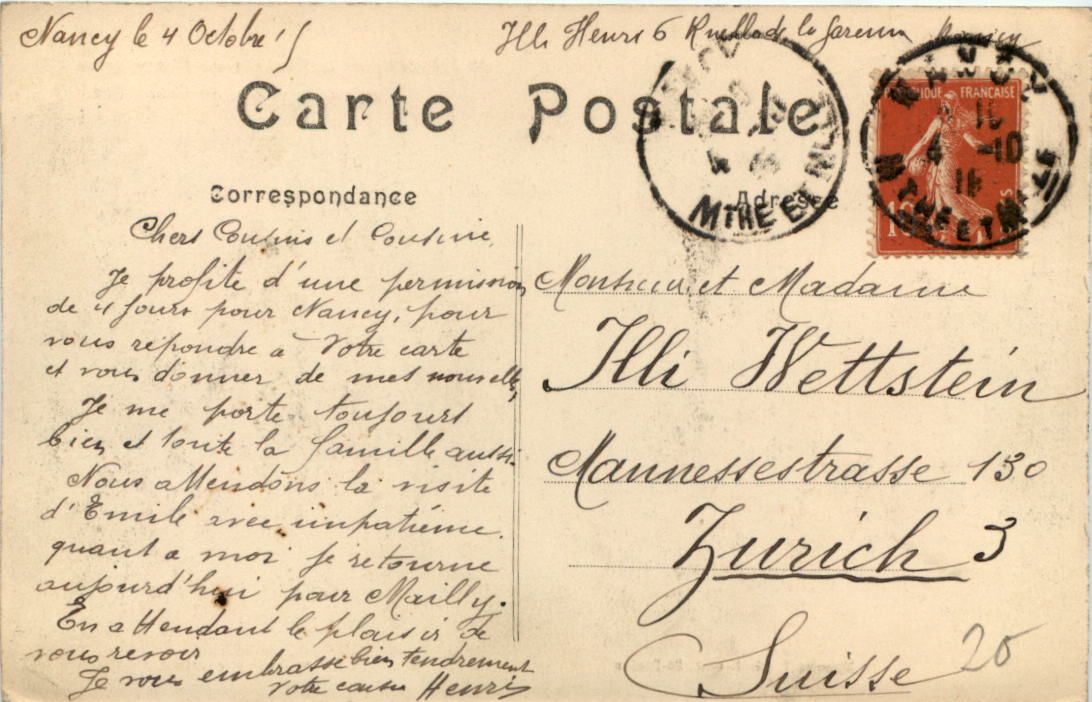 Nancy le 4 Octobre 15
Illi Henri 6 Ruelle de la Garenne Nancy
Carte Postale
Correspondance
Adresse
NANCY
MTHE ET MLLE
NANCY
4 -10
MTHE ET MLLE
REPUBLIQUE FRANCAISE
10
Chers Cousins et Cousine,
Je profite d'une permission
de 4 jours pour Nancy, pour
vous répondre à Votre carte
et vous donner de mes nouvelles,
Je me porte toujours
bien et toute la famille aussi.
Nous attendons la visite
d'Emile avec impatience.
quant a moi je retourne
aujourd'hui pour Mailly.
En attendant le plaisir de
vous revoir
Je vous embrasse bien tendrement
votre cousin Henri
Monsieur et Madame
Illi Wettstein
Mannessestrasse 130
Zurich 3
Suisse
20